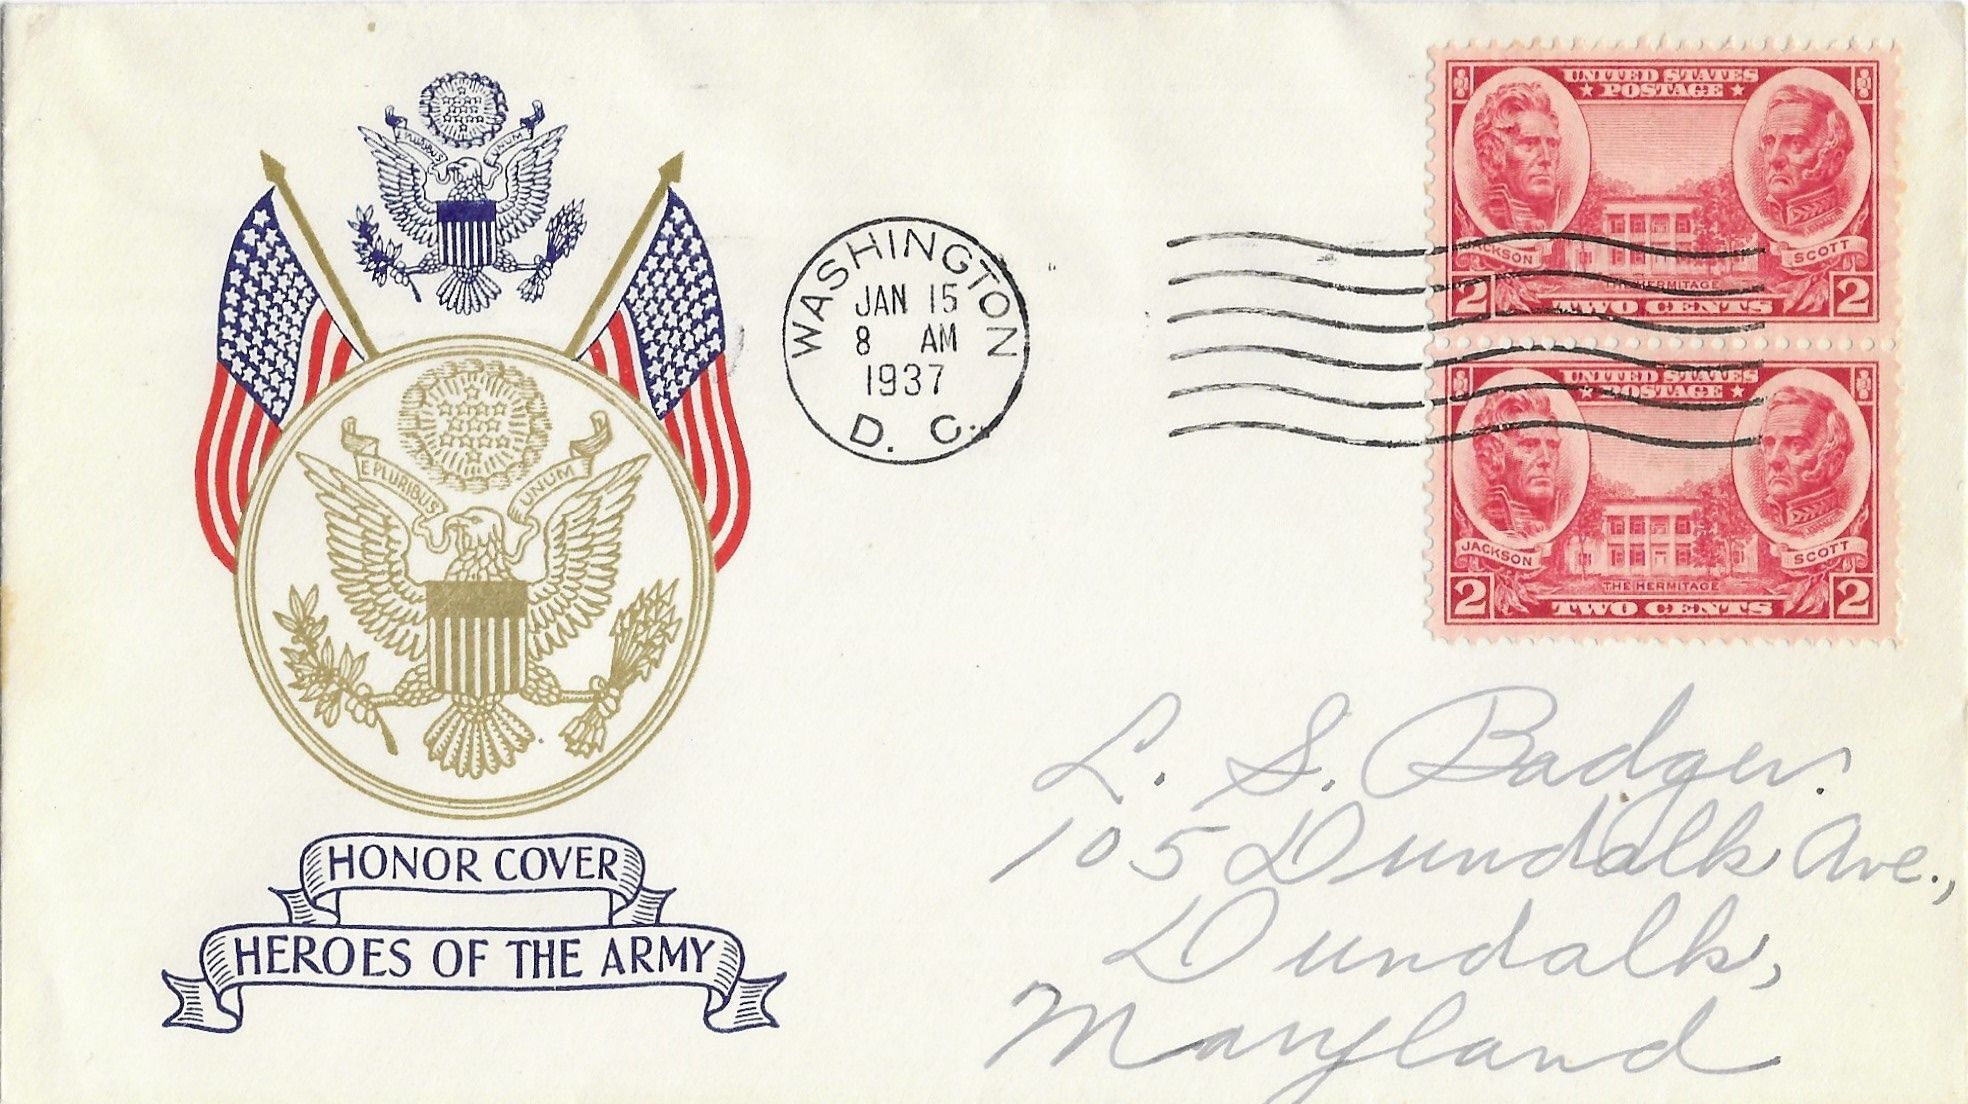 E PLURIBUS UNUM
E PLURIBUS UNUM
HONOR COVER
HEROES OF THE ARMY
WASHINGTON
JAN 15
8 AM
1937
D. C.
UNITED STATES
POSTAGE
JACKSON
SCOTT
THE HERMITAGE
2 TWO CENTS 2
UNITED STATES
POSTAGE
JACKSON
SCOTT
THE HERMITAGE
2 TWO CENTS 2
L. S. Badger.
105 Dundalk Ave.,
Dundalk,
Maryland